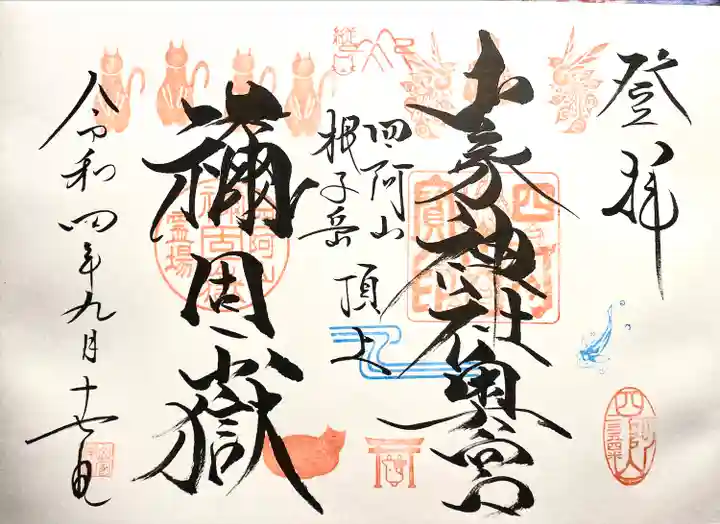 登拝
山家神社奥宮
四阿山
根子岳
頂上
禰固嶽
令和四年九月十七日
四阿山
寶印
四阿山
霊場
四阿山